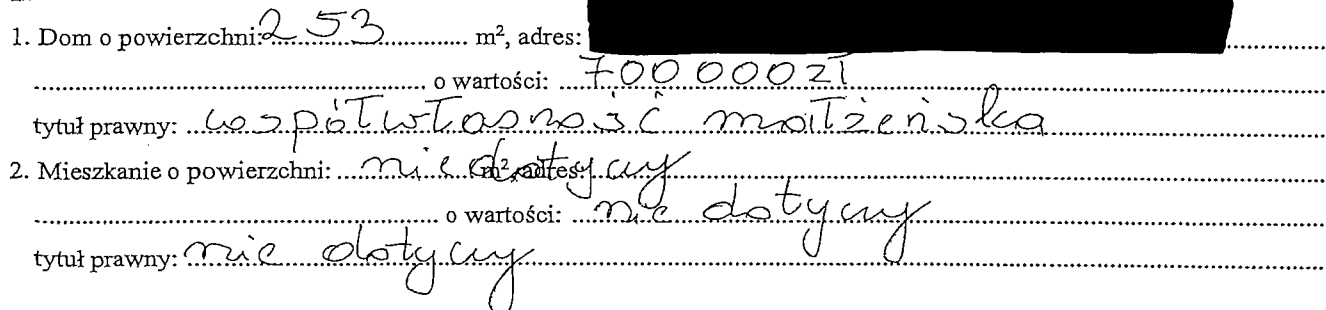 1. Dom o powierzchni: 253 m², adres:
o wartości: 700 000 zł
tytuł prawny: współwłasność małżeńska
2. Mieszkanie o powierzchni: nie dotyczy m², adres:
o wartości: nie dotyczy
tytuł prawny: nie dotyczy